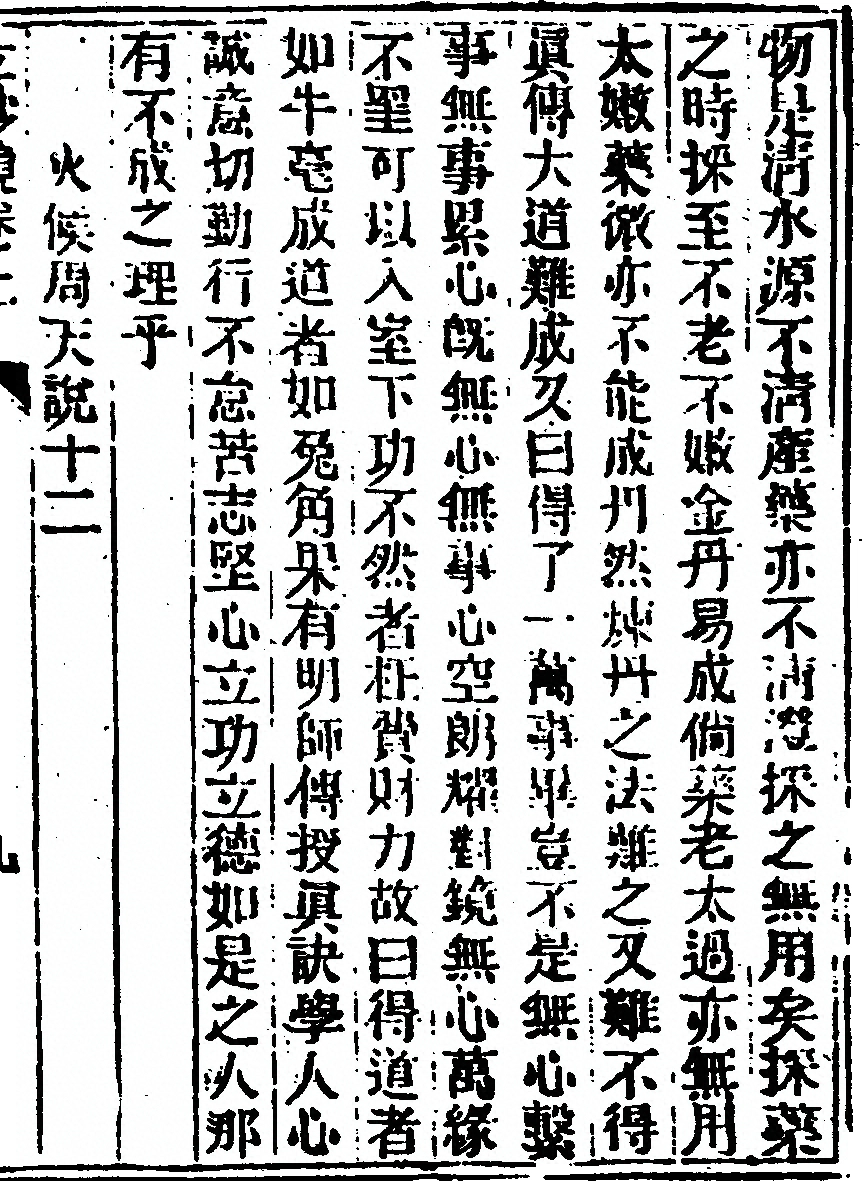 物是清水源不清產藥亦不清澄採之無用矣採藥
之時採至不老不嫩金丹易成倘藥老太過亦無用
太嫩藥微亦不能成丹然煉丹之法難之又難不得
眞傳大道難成又曰得了一萬事畢豈不是無心繫
事無事累心旣無心無事心空朗耀對鏡無心萬緣
不罣可以入室下功不然者枉費財力故曰得道者
如牛毫成道者如兔角果有明師傳授眞訣學人心
誠意切勤行不怠苦志堅心立功立德如是之人那
有不成之理乎
火候周天說十二